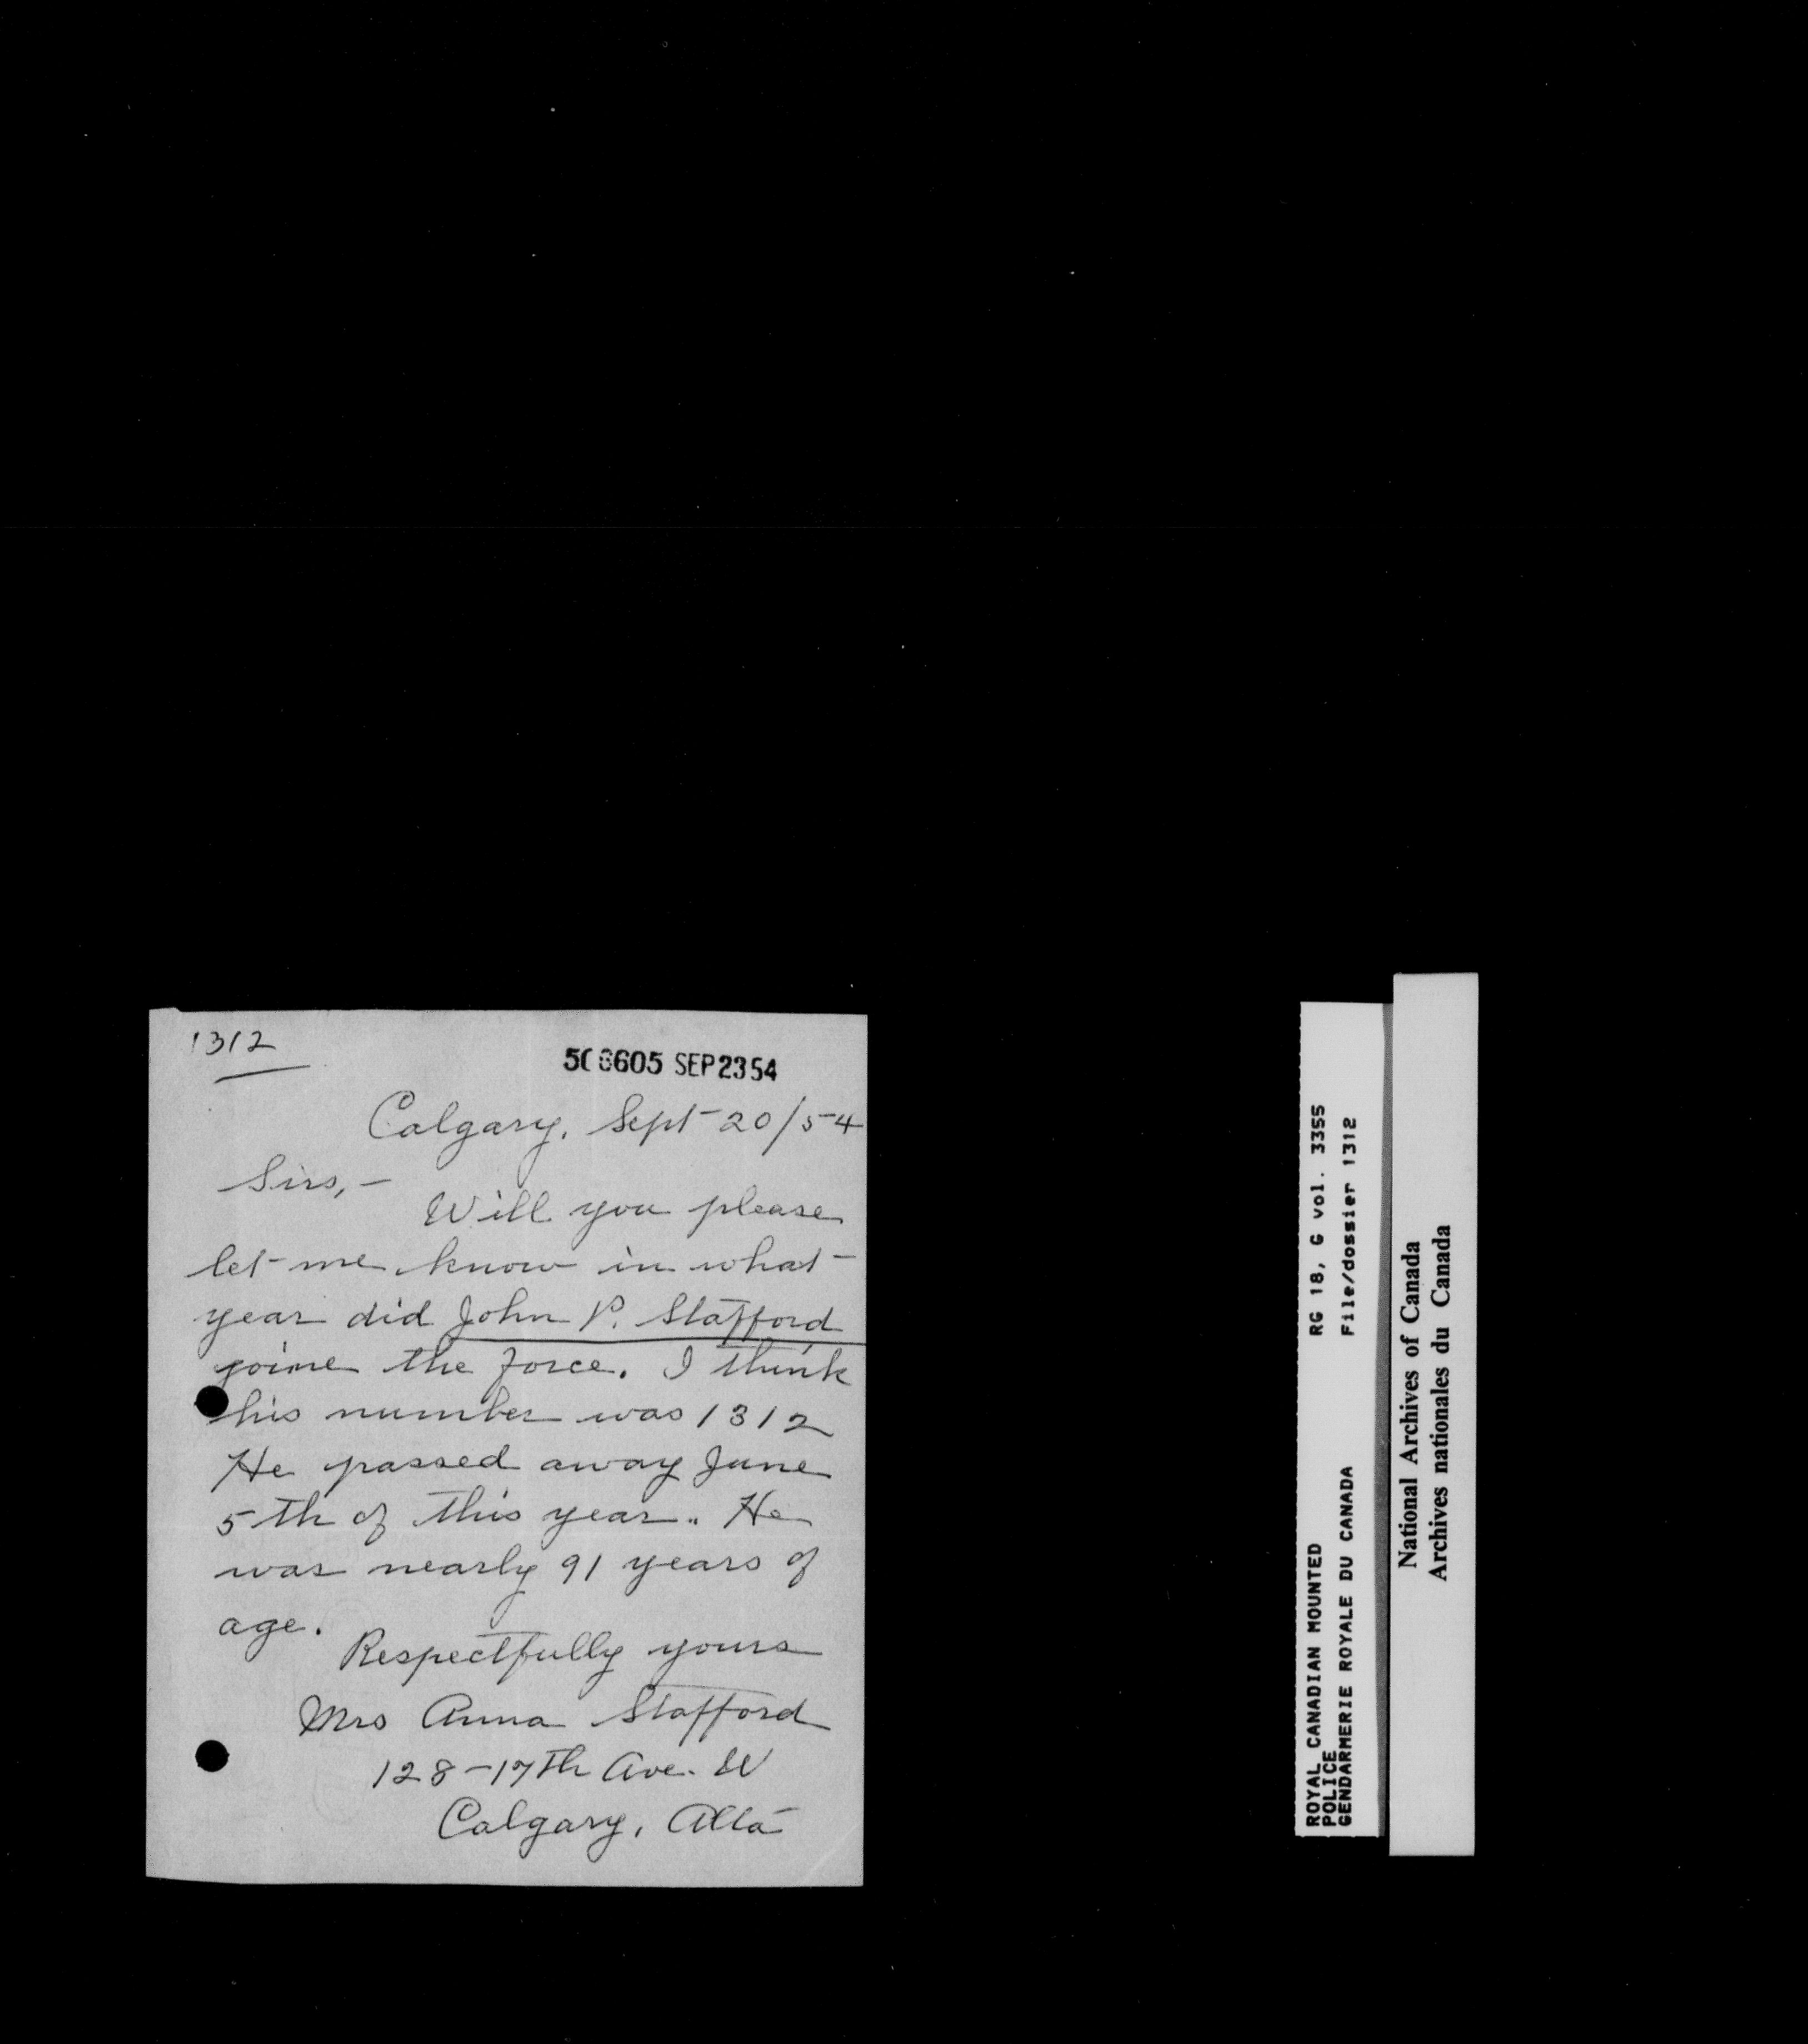 1312
605 SEP 23 54
Calgary, Sept 20/54
Sirs,-
Will you please
let me know in what
year did John P. Stafford
joine the force. I think
his number was 1312
He passed away June
5th of this year. He
was nearly 91 years of
age.
Respectfully yours
Mrs Anna Stafford
128-17th Ave. W
Calgary, Alta
ROYAL CANADIAN MOUNTED RG 18, G vol. 3355
POLICE
GENDARMERIE ROYALE DU CANADA File/dossier 1312
National Archives of Canada
Archives nationales du Canada